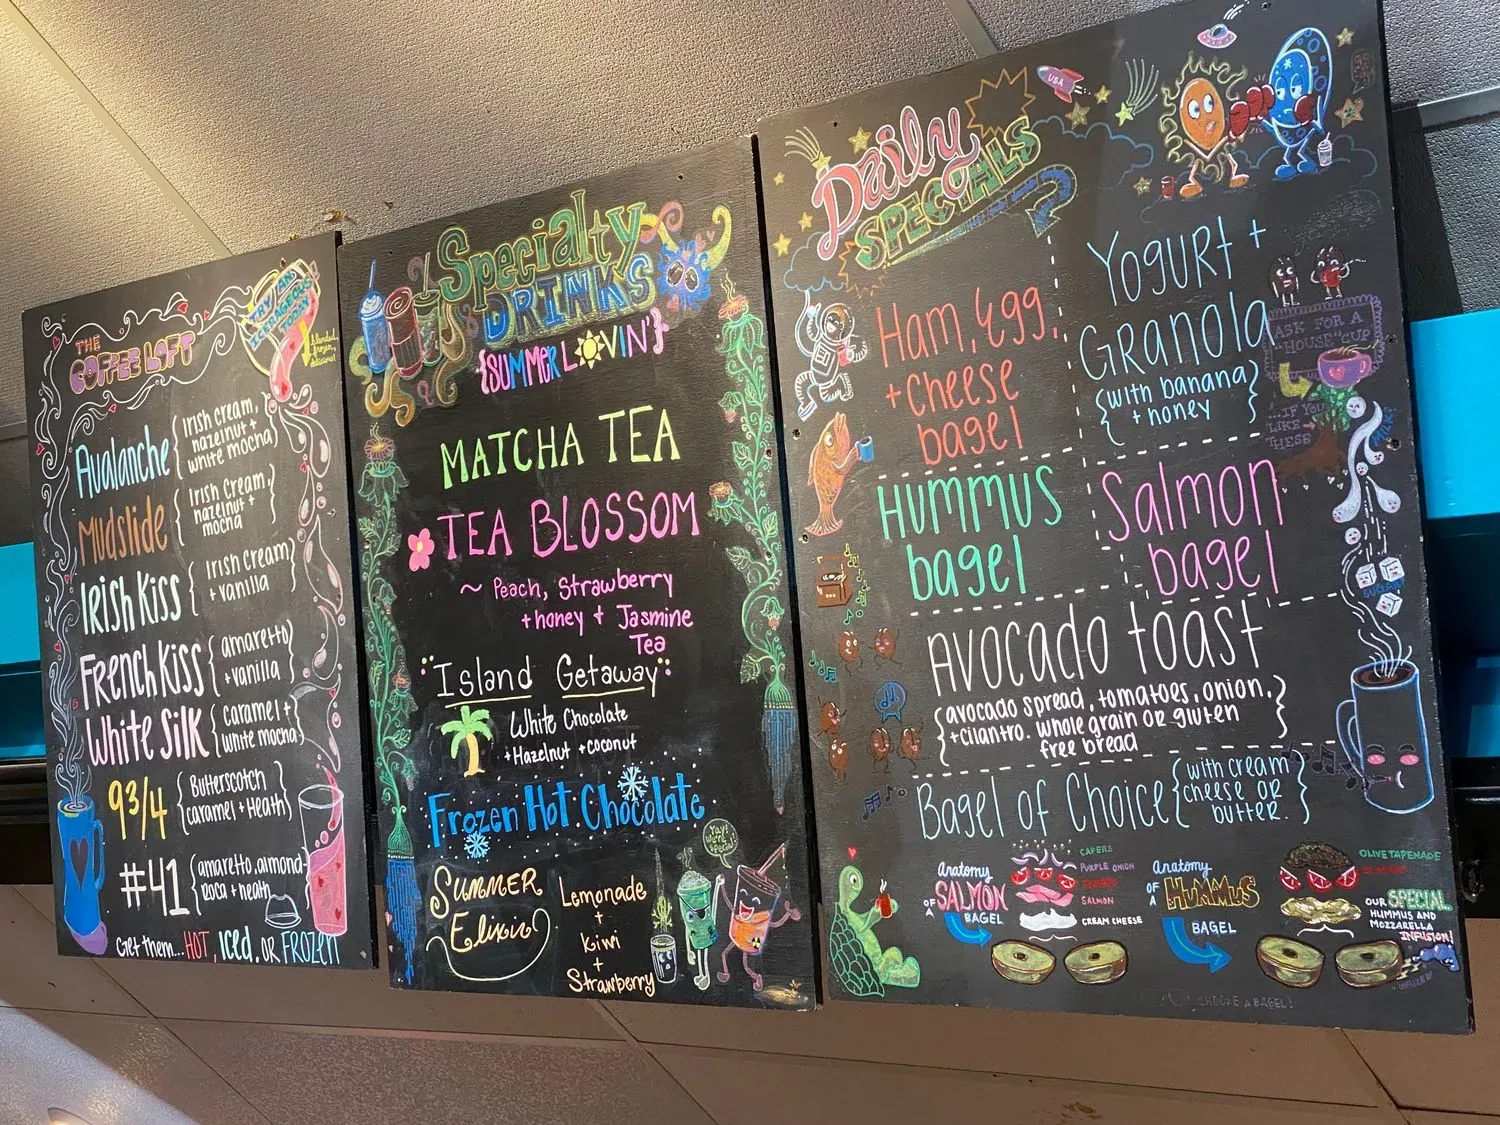 THE
COFFEE LOFT
TRY AN
TODAY
blended,
frozen,
delicious!
Avalanche
Irish cream,
hazelnut +
white mocha
Mudslide
Irish cream,
hazelnut +
mocha
Irish Kiss
Irish cream
+ vanilla
French Kiss
amaretto
+ vanilla
White Silk
caramel +
white mocha
93/4
Butterscotch
caramel + Heath
#41
amaretto, almond
roca + heath
Get them... HOT, iced, OR FROZEN
Specialty
DRINKS
{SUMMER LOVIN'}
MATCHA TEA
TEA BLOSSOM
~ Peach, Strawberry
+ honey + Jasmine
Tea
Island Getaway
White Chocolate
+ Hazelnut + coconut
Frozen Hot Chocolate
Summer
Elixir
Lemonade
+
Kiwi
+
Strawberry
Yay!
We're
Special!
Daily
SPECIALS
USA
Ham, Egg,
+ Cheese
bagel
Yogurt +
Granola
{with banana
+ honey}
ASK FOR A
"HOUSE CUP"
...IF YOU
LIKE
THESE
MILK?
Hummus
bagel
Salmon
bagel
SUGAR?
Avocado toast
{avocado spread, tomatoes, onion,
+ cilantro. whole grain or gluten
free bread}
Bagel of Choice
{with cream
cheese or
butter}
Anatomy
OF A
SALMON
BAGEL
CAPERS
PURPLE ONION
SALMON
CREAM CHEESE
Anatomy
OF A
HUMMUS
BAGEL
OLIVE TAPENADE
OUR SPECIAL
HUMMUS AND
MOZZARELLA
INFUSION!
CHOOSE A BAGEL!